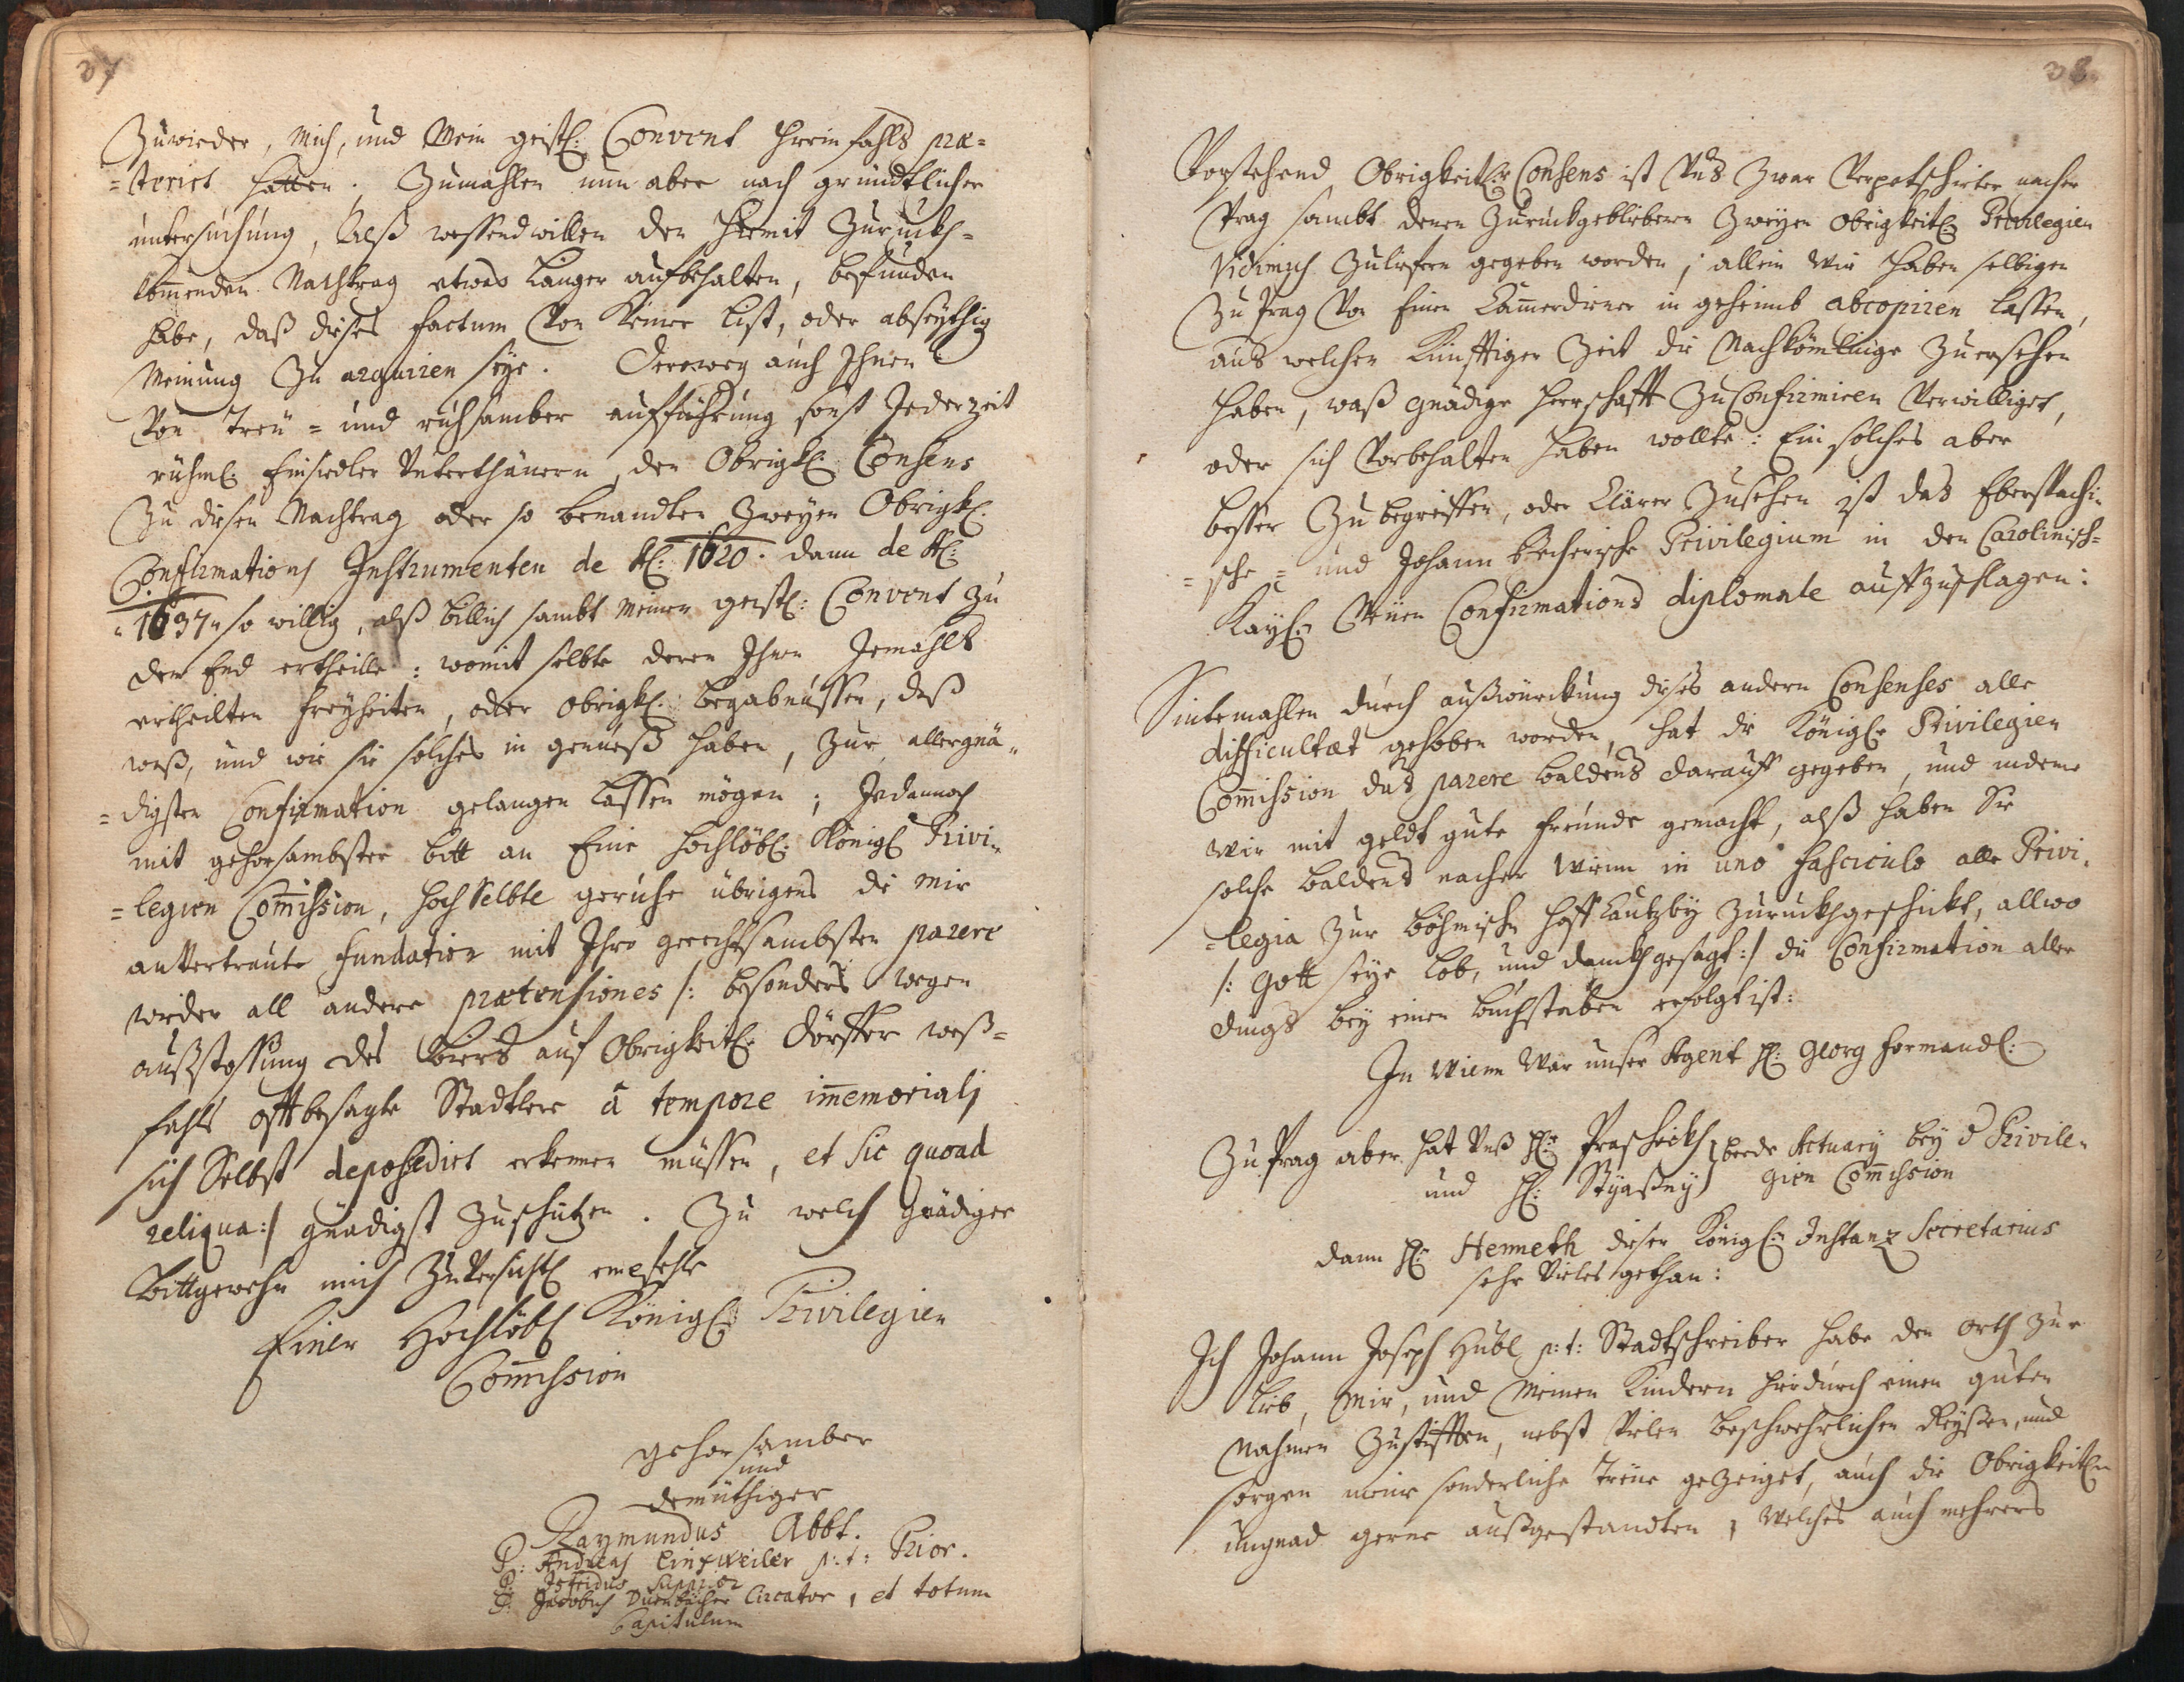 37
Zuwieder, mich, und Mein geistl: Convent hierinfahls præ=
=terirt hatten. Zumahlen nun aber nach gründtlicher
untersuchung, Alß wessendwillen den hiemit Zuruckh=
kom̅enden Nachtrag etwas länger aufbehalten, befunden
habe, daß dieses factum Von Keiner list, oder abseythig
Meinung Zu arguiren seye. Dereweg auch Ihnen
Von Treu= und ruhsamber aufführung sonst Jederzeit
rühml: Einsiedler Unterthanern, den Obrigkl: Consens
Zu diesen Nachtrag oder so benandten Zweyen Obrigkl:
Confirmations Instrumenten de Ao: 1620. dann de Ao:
1697 so willig, alß billich sambt meinen geistl: Convent zu
dem End ertheille: womit selbte deren Ihnen Jemahls
ertheilten freyheiten, oder Obrigkl: begabnussen, deß
weß, und wie sie solches in genueß haben, Zur allergnä=
=digsten Confirmation gelangen lassen mögen; Jedannoch
mit gehorsambster bitt an Eine hochlöbl: Königl Privi=
=legien Com̅ission, hoch Selbte geruhe übrigens die mir
anVertraute fundation mit Ihro gerechtsambsten parere
wieder all andere prætensiones /: besonders wegen
außstossung des biers auf Obrigkeitl: dörffer weß=
fahls offtbesagte Stadtlere â tempore im̅emoriali
sich Selbst depossedirt erkennen müssen, et sic quoad
reliqua:/ gnädigst Zuschützen. Zu welch Gnädiger
Bittgewehr mich Zuversichtl empfehle
Einer Hochlöbl Königl: Privilegien
Com̅ission
gehorsamber
und
demüthiger
Raymundus Abbt.
P: Andreas Einsweiler p: t: Prior.
P. Supprior
P. Jacobus Circator, et totum
Capitulum
38.
Vorstehend Obrigkeitlr Consens ist Uns Zwar Verpetschirter nacher
Prag sambt denen Zuruckgebliebenen Zweyen Obrigkeitl: Privilegien
Vidimus Zuliefern gegeben worden; allein Wir haben selbigen
Zu Prag Von Einen Cam̅erdiener in geheimb abcopiren lassen,
aus welchen Künfftiger Zeit die Nachköm̅linge Zuersehen
haben, waß gnädige Herrschafft Zu Confirmiren Verwilliget,
oder sich Vorbehalten haben wollte: Ein solches aber
besser Zu begreiffen, oder Clärer Zusehen ist das Eberspachi=
=sche= und Johann Becherische Privilegium in den Carolinisch=
Kayl: Neüen Confirmations diplomate aufzuschlagen:
Sintemahlen durch außwürckung dieses andern Consenses alle
difficultæt gehoben worden, hat die Königl: Privilegien
Com̅ission das parere baldens darauf gegeben, und indeme
Wir mit geldt gute freunde gemacht, alß haben Sie
solche baldens nacher Wienn in uno fasciculo alle Privi=
=legia Zur böhmischen Hoff Cantzley Zuruckhgeschickt, allwo
/: Gott seye lob, und danckh gesagt:/ die Confirmation aller
dings bey einen Buchstaben erfolgt ist:
In Wienn War unser Agent H: Georg Hermandl:
Zu Prag aber hat Unß H: Praschekh } beede Actuary bey d Privile=
und H: Styaßny } gien Com̅ission
dann H: Henneth dieser Königl: Instanz Secretarius
sehr Vieles gethan:
Ich Johann Joseph Hübl p: t: Stadtschreiber habe den orth zur
lieb, Mir, und Meinen Kindern hirdurch einen guten
Nahmen Zustifften, nebst Vielen beschwehrlichen Reyßen, und
sorgen meine sonderliche Treüe gezeiget, auch die Obrigkeitle
ungnad gerne außgestandten, Welches auch mehrers